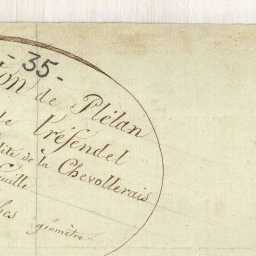 - 35 -
ion de Plélan
de Trésendel
dite de la Chevollerais
euille
géomètre